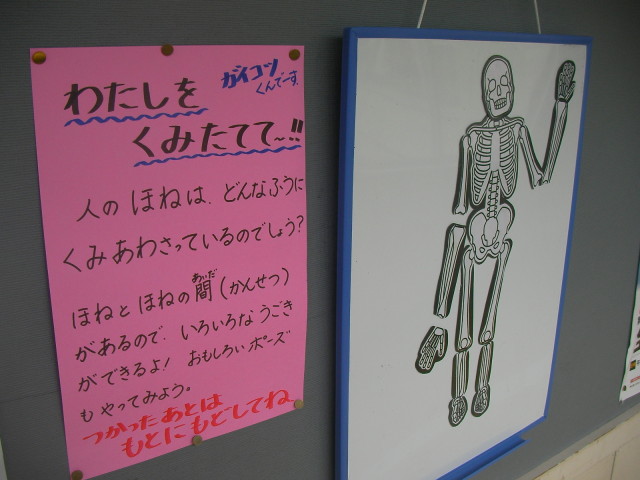 わたしを
ガイコツ
くんでーす。
くみたてて~!!
人のほねは、どんなふうに
くみあわさっているのでしょう?
ほねとほねの間(かんせつ)
あいだ
があるので、いろいろなうごき
ができるよ! おもしろいポーズ
もやってみよう。
つかったあとは
もとにもどしてね。